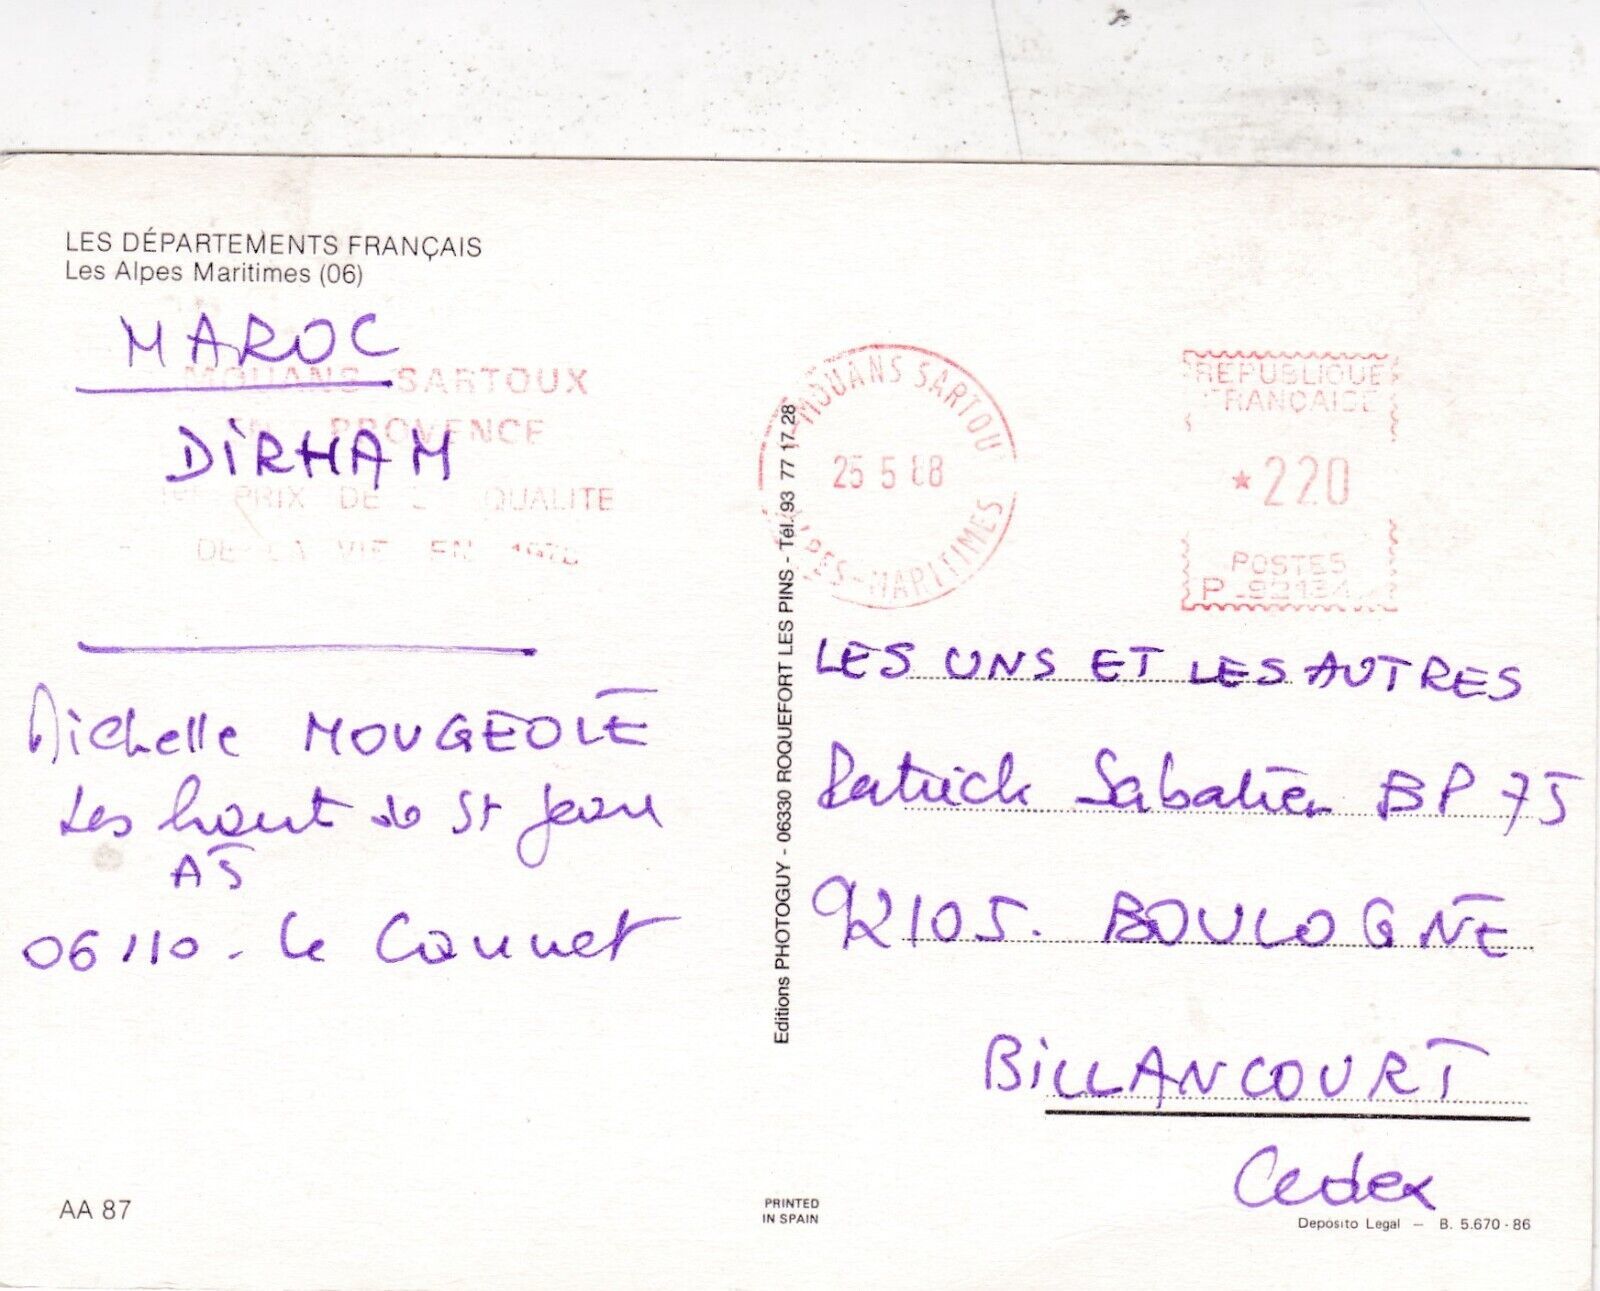 LES DÉPARTEMENTS FRANÇAIS
Les Alpes Maritimes (06)
MAROC
DIRHAM
MOUANS SARTOUX
EN PROVENCE
1er PRIX DE LA QUALITE
DE LA VIE EN
Michelle MOUGEOLE
Les haut de St Jean
A5
06110. Le Cannet
AA 87
Editions PHOTOGUY - 06330 ROQUEFORT LES PINS - Tél. 93 77 17 28
PRINTED
IN SPAIN
MOUANS SARTOU
25 5 88
ALPES-MARITIMES
REPUBLIQUE
FRANCAISE
*220
POSTES
P
LES UNS ET LES AUTRES
Patrick Sabatier BP 75
92105. BOULOGNE
BILLANCOURT
Cedex
Deposito Legal - B. 5.670-86